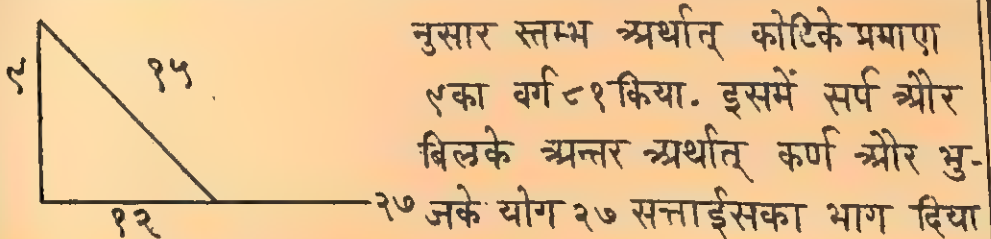 नुसार स्तम्भ अर्थात् कोटिके प्रमाण
९ १५
९का वर्ग ८१ किया. इसमें सर्प और
बिलके अन्तर अर्थात् कर्ण और भु-
१२ २७ जके योग २७ सत्ताईसका भाग दिया